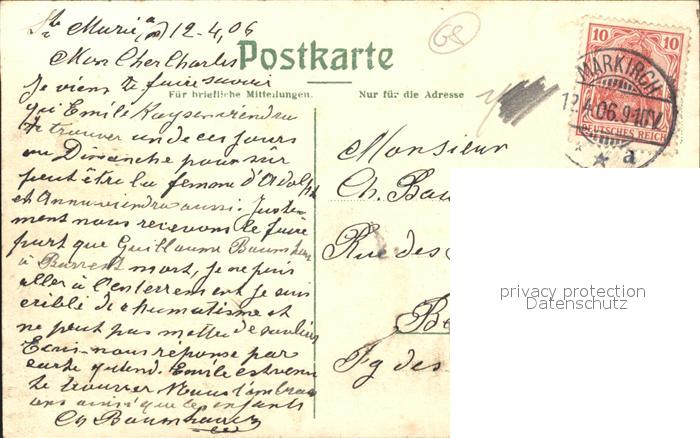 Ste Marie a/m 12-4,06
Mon Cher Charles
Postkarte
Je viens te faire savoir
Für briefliche Mitteilungen.
Nur für die Adresse
qu'Emile Kayser viendra
te trouver un de ces jours
ou Dimanche pour sûr
peut être la femme d'Adolphe
et Anna viendra aussi. Juste-
ment nous recevons le faire
part que Guillaume Baumhauer
à mort, je ne puis
aller à l'enterrement je suis
criblé de rhumatisme et
ne peut pas mettre de souliers
Ecris-nous réponse par
carte Emile est venu
te trouver Nous t'embras
sons ainsi que les enfants
Ch Baumhauer
10 10
MARKIRCH
13 4.06.9-10V.
DEUTSCHES REICH
* * a
Monsieur
Ch. Bau
Rue des
Be
Fg des
privacy protection
Datenschutz